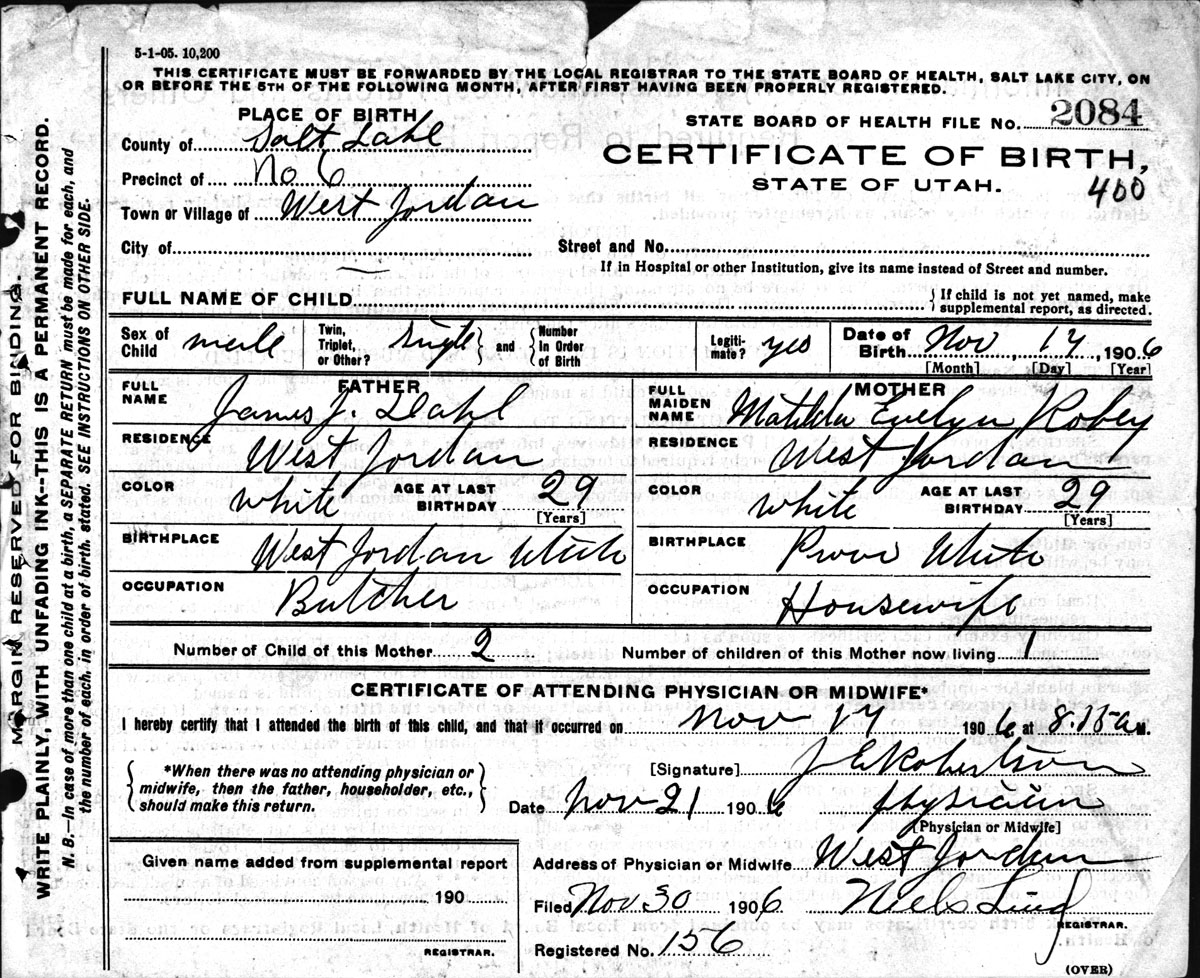 5-1-05. 10,200
THIS CERTIFICATE MUST BE FORWARDED BY THE LOCAL REGISTRAR TO THE STATE BOARD OF HEALTH, SALT LAKE CITY, ON
OR BEFORE THE 5TH OF THE FOLLOWING MONTH, AFTER FIRST HAVING BEEN PROPERLY REGISTERED.
PLACE OF BIRTH
STATE BOARD OF HEALTH FILE No. 2084
County of Salt Lake
CERTIFICATE OF BIRTH,
Precinct of No 6
STATE OF UTAH.
400
Town or Village of West Jordan
City of
Street and No.
If in Hospital or other Institution, give its name instead of Street and number.
FULL NAME OF CHILD
{If child is not yet named, make
supplemental report, as directed.
Sex of Child male
Twin, Triplet, or Other? Single } and { Number in Order of Birth
Legiti-mate? yes
Date of Birth Nov, 17, 1906
[Month] [Day] [Year]
FATHER
FULL NAME James J. Dahl
RESIDENCE West Jordan
COLOR White
AGE AT LAST BIRTHDAY 29
[Years]
BIRTHPLACE West Jordan Utah
OCCUPATION Butcher
MOTHER
FULL MAIDEN NAME Matilda Evelyn Robey
RESIDENCE West Jordan
COLOR White
AGE AT LAST BIRTHDAY 29
[Years]
BIRTHPLACE Provo Utah
OCCUPATION Housewife
Number of Child of this Mother 2
Number of children of this Mother now living 1
CERTIFICATE OF ATTENDING PHYSICIAN OR MIDWIFE*
I hereby certify that I attended the birth of this child, and that it occurred on Nov 17 1906 at 8:15 a M.
{*When there was no attending physician or
midwife, then the father, householder, etc.,
should make this return.}
[Signature] J E Robertson
Date Nov 21 1906 physician
[Physician or Midwife]
Given name added from supplemental report
190
REGISTRAR.
Address of Physician or Midwife West Jordan
Filed Nov 30 1906 Niels Lind
REGISTRAR.
Registered No. 156
(OVER)
MARGIN RESERVED FOR BINDING.
WRITE PLAINLY, WITH UNFADING INK--THIS IS A PERMANENT RECORD.
N. B.—In case of more than one child at a birth, a SEPARATE RETURN must be made for each, and
the number of each, in order of birth, stated. SEE INSTRUCTIONS ON OTHER SIDE.